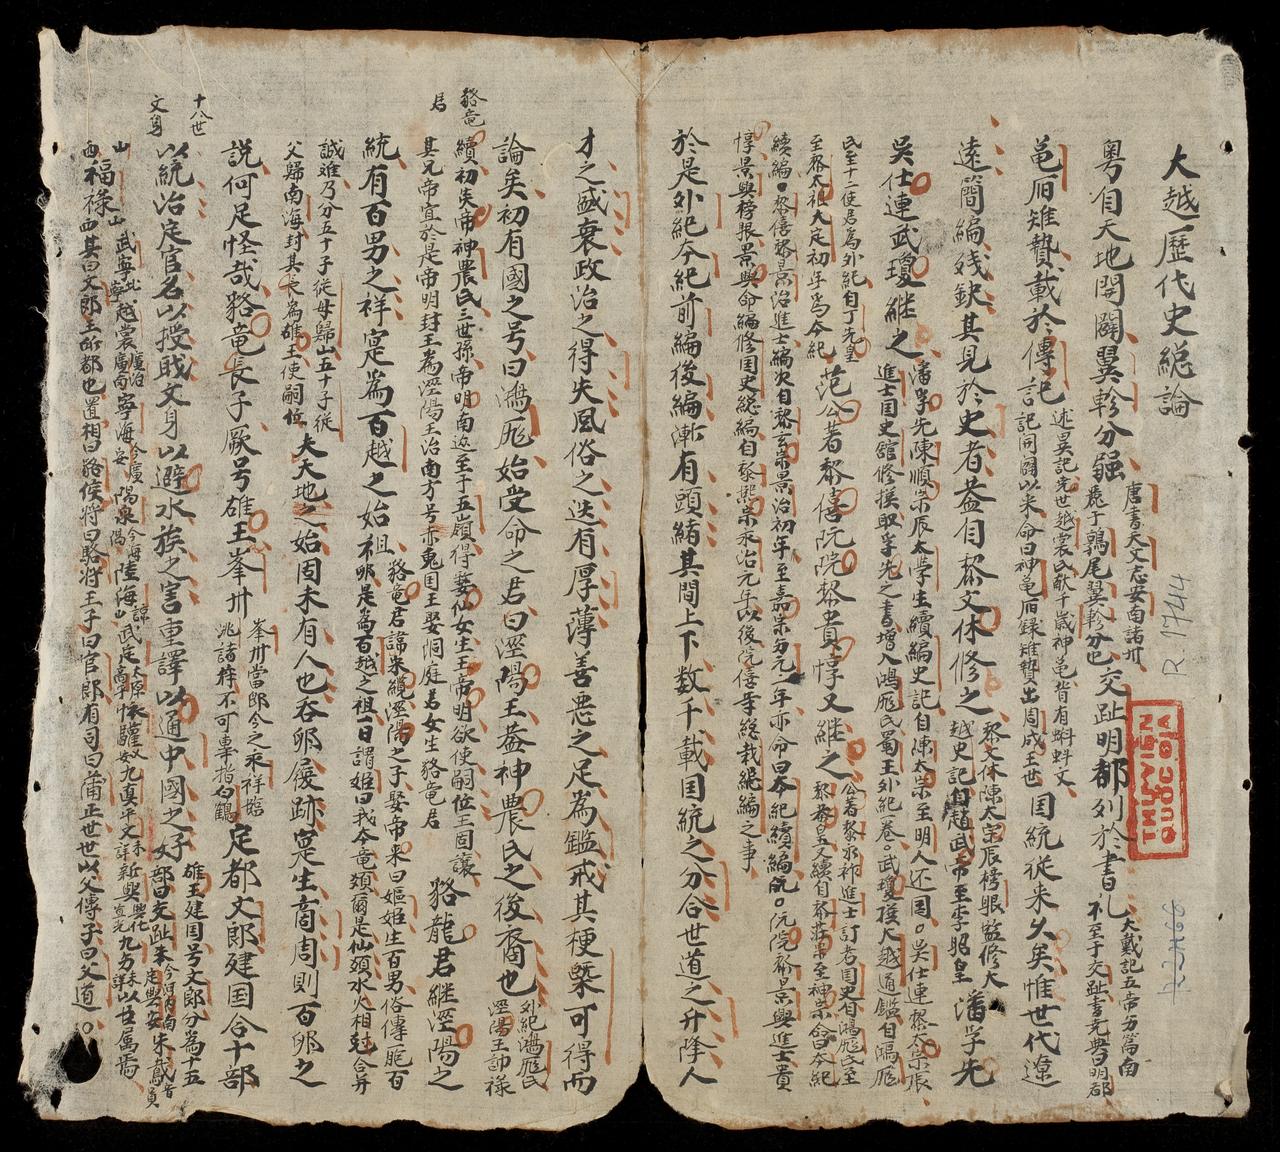 大越歷代史総論
粵自天地開闢翼軫分疆
唐書天文志安南諸州
鹿于鶉尾翼軫分也
交趾明都列於書礼
大戴記五帝万篇南
不至于交趾書尭典曰明都
龜雁雉贄載於傳記
述異記先世越裳氏献千歳神亀背有蝌蚪文
記同闢以来命曰神亀雁録雉贄出周成王世
国統従来久矣惟世代遼
遠簡編残缺其見於史者葢自黎文休修之
黎文休陳太宗辰榜眼監修大
越史記自趙武帝至李昭皇
潘孚先
吳仕連武瓊継之
潘孚先陳順宗辰太学生續編史記自陳太宗至明人还国〇吴仕連黎太宗辰
進士国史舘修撰取孚先之書増入鴻厖氏蜀王外紀一巻〇武瓊撰大越通鑑自鴻厖
民至十二使君為外紀自丁先皇
至黎太祖大定初年為本紀
范公著黎僖阮院黎貴惇又継之
公著黎永祚進士訂考国史自鴻厖氏至
黎恭皇又續自黎荘宗至神宗曰本紀
續編〇黎僖黎景治進士編次自黎玄宗景治初年至嘉宗
年亦命曰本紀續編〇阮院黎景興進士貴
惇景興榜眼景興命編修国史総編自黎熙宗永治元年以後院僖等総裁継編之事
於是外紀本紀前編後編漸有頭緒其間上下数千載国統之分合世道之升降人
才之盛衰政治之得失風俗之迭有厚薄善悪之足為鑑戒其梗槩可得而
論矣初有國之号曰鴻厖始受命之君曰涇陽王葢神農氏之後裔也
外紀鴻厖氏
涇陽王帥禄
貉竜
君
續初炎帝神農氏三世孫帝明南廵至于五嶺得婺仙女生王帝明欲使嗣位王固譲
其兄帝宜於是帝明封王為涇陽王治南方号赤鬼国王娶洞庭君女生貉竜君
貉龍君継涇陽之
統有百男之祥寔為百越之始祖
貉竜君諱崇纜涇陽之子娶帝来曰嫗姫生百男俗傳胞百
卵是為百越之祖一日謂姫曰我今竜類爾是仙類水火相尅合并
誠难乃分五十子従母歸山五十子従
父歸南海封其長為雄王使嗣位
夫天地之始固未有人也吞卵履跡寔生商周則百卵之
說何足怪哉貉竜長子厥号雄王峯州
峯州當郎今之永祥臨
洮諸轄不可專指白鶴
定都文郎建国合十部
十八世
文身
以統治定官名以授職文身以避水族之害重譯以通中國之好
雄王建国号文郎分為十五
部曰交趾
朱鳶
山
西
福禄
山
西
武寧
北
寧
越裳
廣治
廣南
寧海
今廣
安
陽泉
今海
陽
陸海
諒
山
武定
太原
高平
懐驩
乂
安
九真
新興
興化
宣光
九万
未
詳
以臣属焉
其曰文郎王所都也置相曰貉侯将曰貉将王子曰官郎有司曰蒲正世世以父傳子曰父道
R.1744
THƯ VIỆN
QUỐC GIA